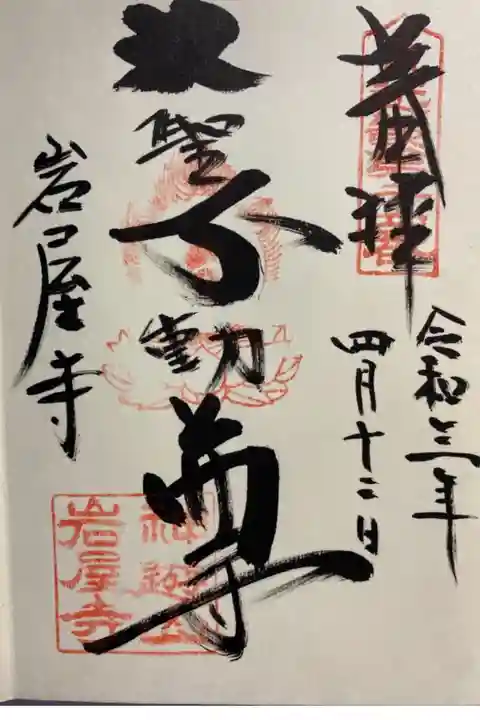 奉拝
令和三年
四月十二日
聖不動尊
岩屋寺
神遊山
岩屋寺